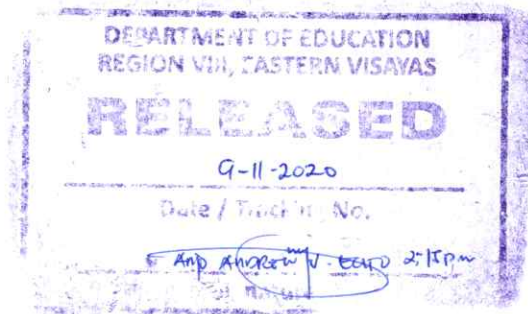 DEPARTMENT OF EDUCATION
REGION VIII, EASTERN VISAYAS
RELEASED
9-11-2020
Date / Tracking No.
ANDREW V. 2:15pm